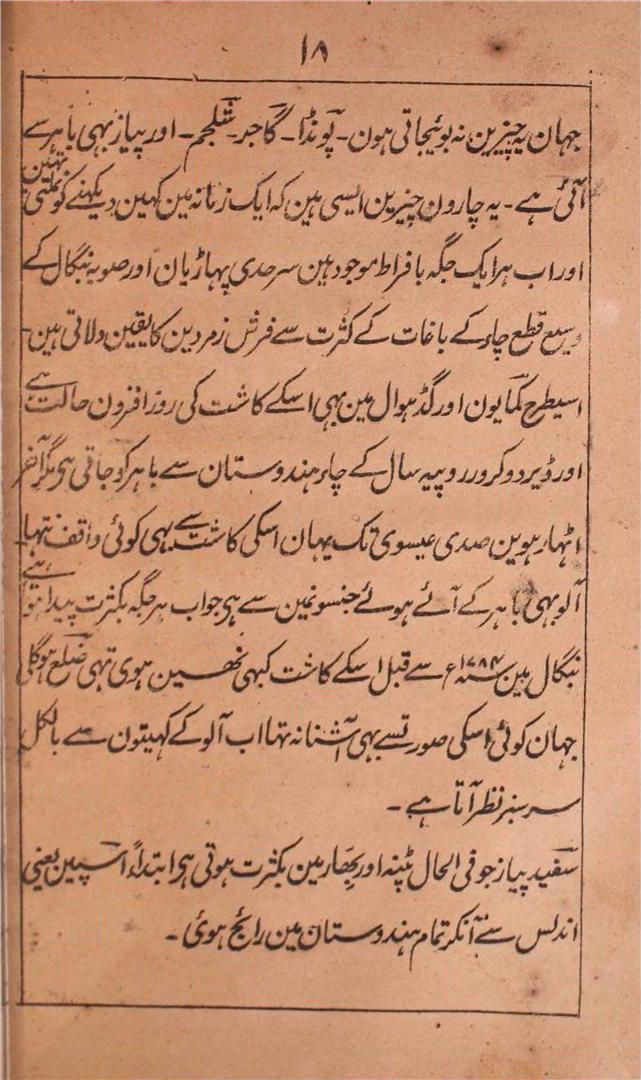 ۱۸
جہان یہ چیزین نہ بوئیجاتی ہون ۔ پونڈا ۔ گاجر ۔ شلجم ۔ اور پیاز بہی باہر سے
آئی ہے ۔ یہ چارون چیزین ایسی ہین کہ ایک زمانہ مین کہین دیکہنے کو نملتی تہین
اور اب ہر ایک جگہ بافراط موجود ہین سرحدی پہاڑیان اور صوبہ بنگال کے
وسیع قطع چاء کے باغات کے کثرت سے فرش زمردین کا یقین دلاتی ہین ۔
اسیطرح کمایون اور گڈہوال مین بہی اسکے کاشت کی روز افزون حالت ہے
اور ڈیرہ دو کرور روپیہ سال کے چاء ہندوستان سے باہر کو جاتی ہی مگر آخر
اٹہارہوین صدی عیسوی تک یہان اسکی کاشت سے بہی کوئی واقف نتہا
آلو بہی باہر کے آئے ہوئے جنسونمین سے ہی جو اب ہر جگہ بکثرت پیدا ہوتا ہے
بنگال مین سنہ ۱۷۸۴ء سے قبل اسکے کاشت کبہی نہین ہوی تہی ضلع ہوگلی
جہان کوئی اسکی صورتسے بہی آشنا نہ تہا اب آلو کے کہیتون سے بالکل
سرسبز نظر آتا ہے ۔
سفید پیاز جو فی الحال پٹنہ اور بہار مین بکثرت ہوتی ہی ابتداءً اسپین یعنی
اندلس سے آنکر تمام ہندوستان مین رائج ہوئی ۔